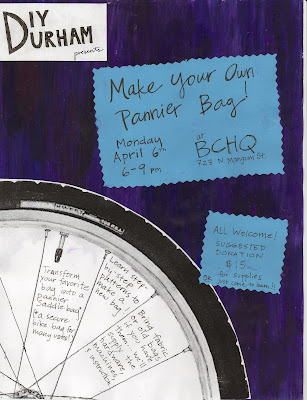 DIY
DURHAM
presents
Make Your Own
Pannier Bag!
Monday
April 6th
6-9 pm
at
BCHQ
723 N. Mangum St.
ALL Welcome!
SUGGESTED
DONATION
$15
for supplies
OR just come to learn!
Transform
your favorite
bag into a
pannier
saddle bag
(a secure
bike bag for
many uses!)
Learn step
by step
patterns to
make a
new bag
Bring fabric
or old bags
if you have
them. We'll
supply
hardware,
machines,
& instruction